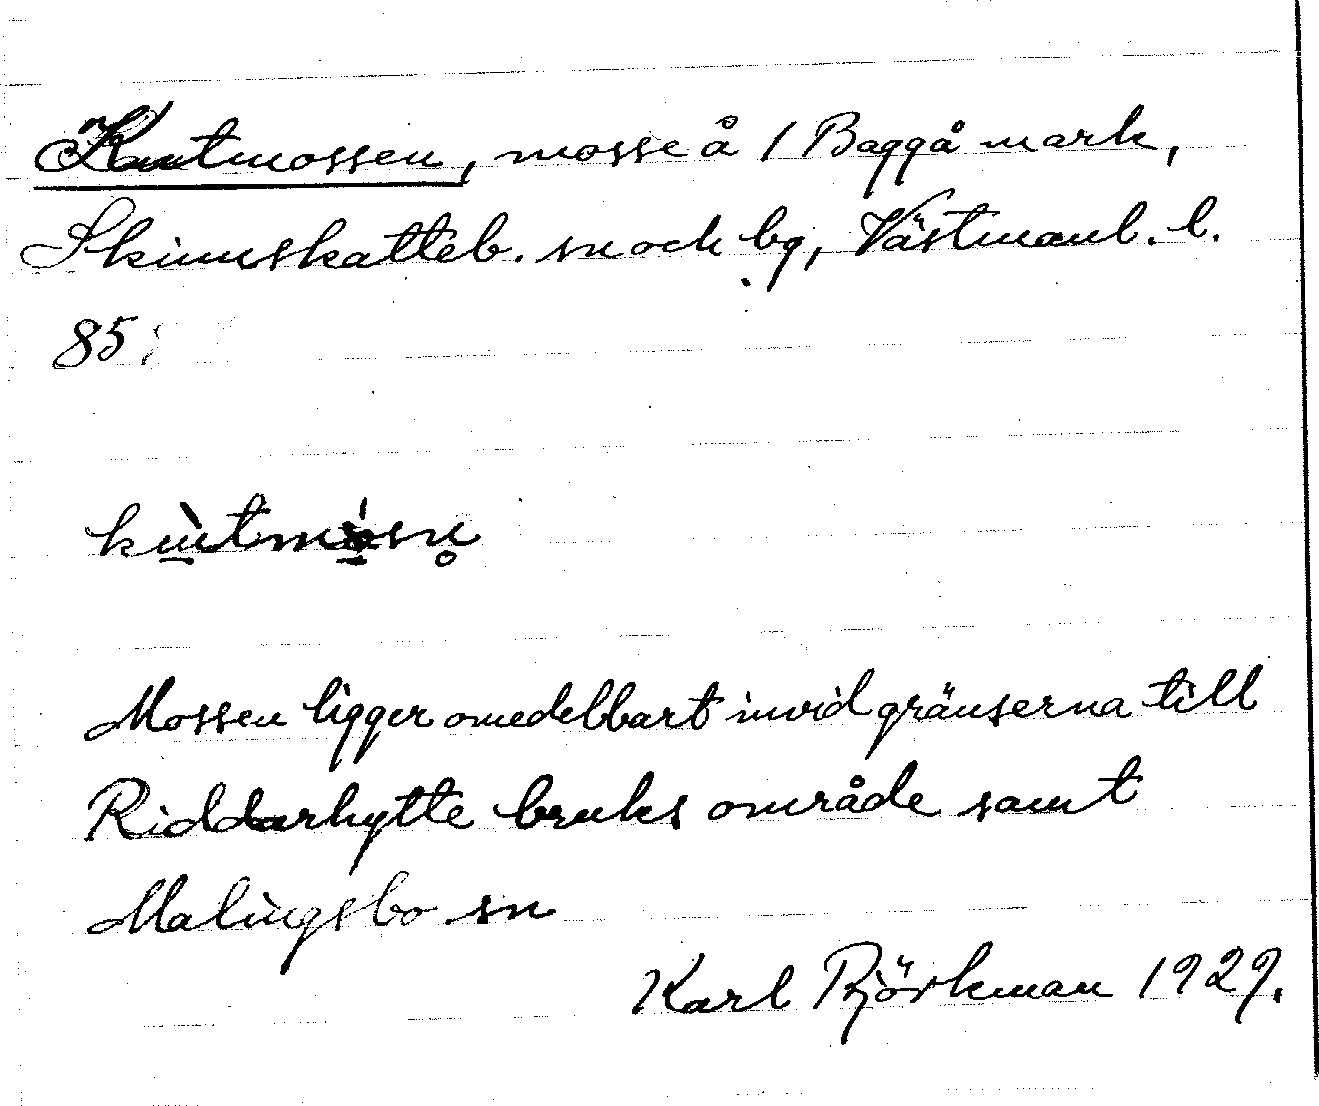 Knutmossen, mosse å 1 Baggå mark,
Skinnskatteb. sn och bg, Västmanl. l.
85
Mossen ligger omedelbart invid gränserna till
Riddarhytte bruks område samt
Malingsbo sn
Karl Björkman 1929.